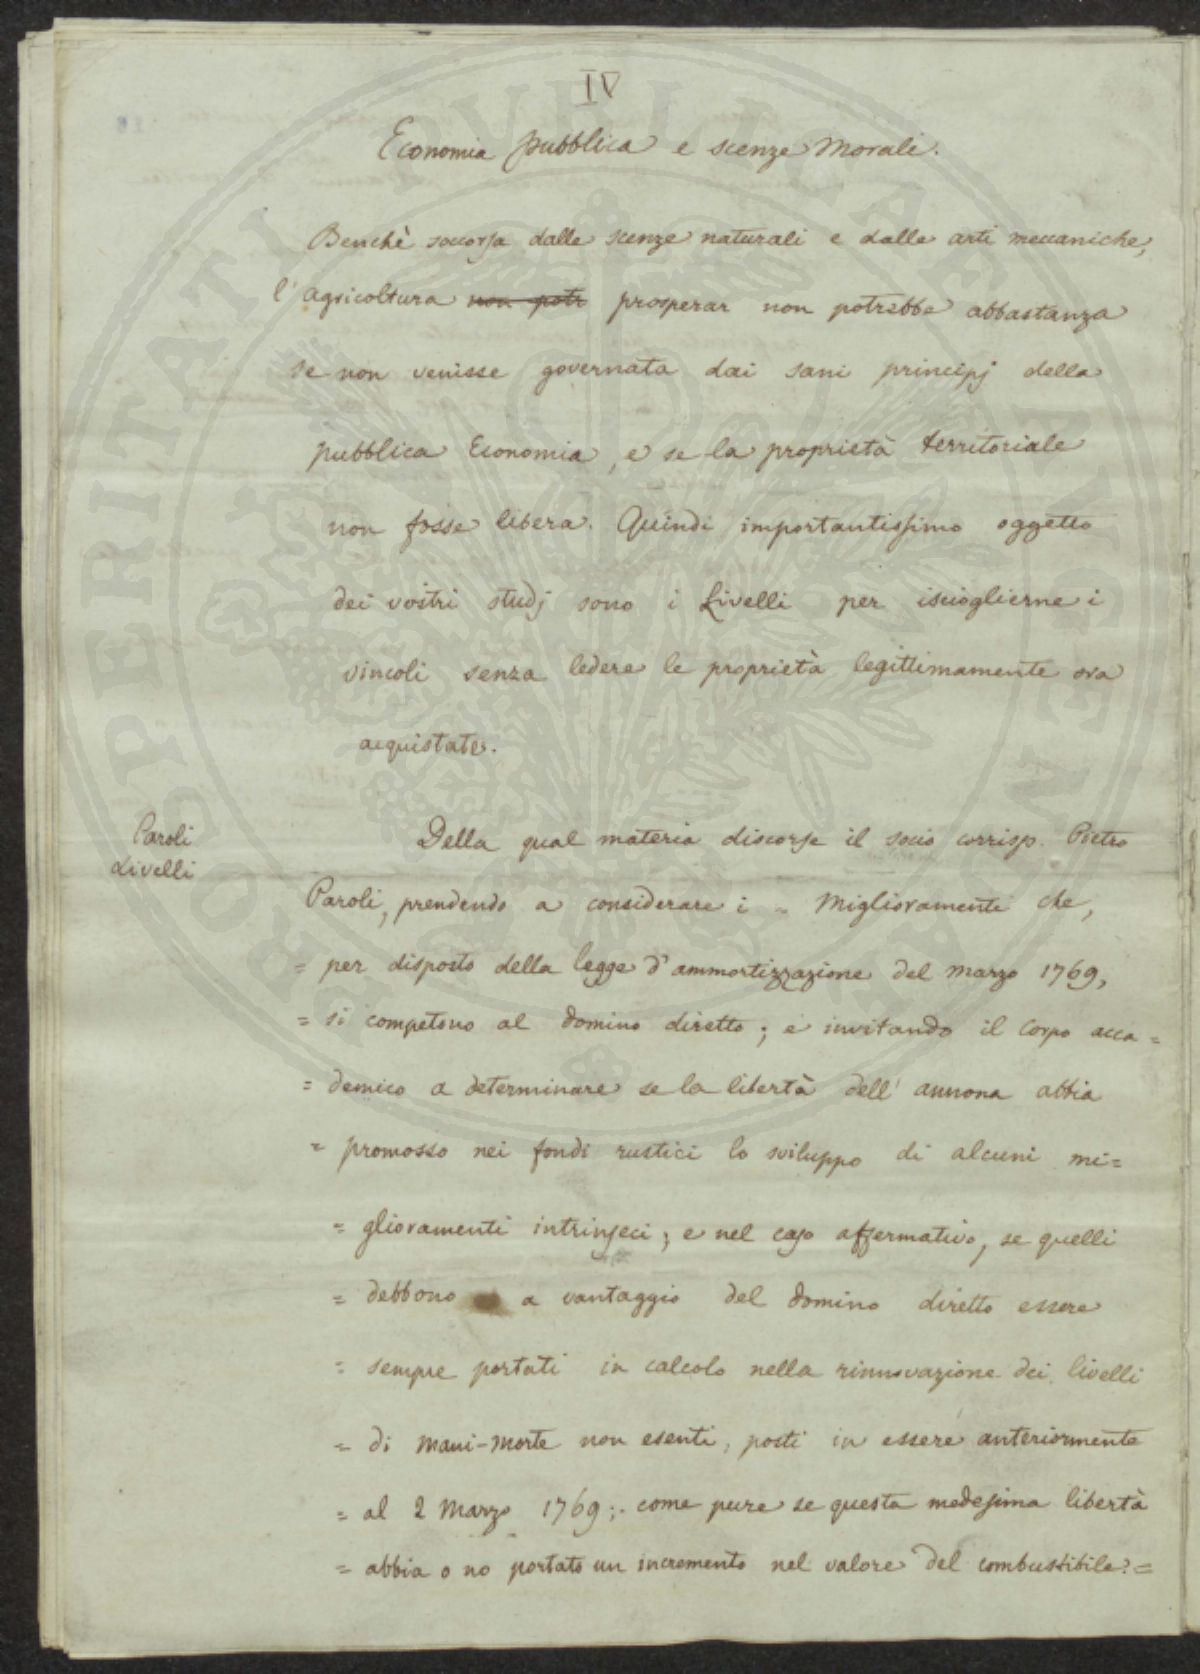 IV
Economia pubblica e scenze Morali.
Benchè soccorsa dalle scenze naturali e dalle arti meccaniche,
l'agricoltura non potr prosperar non potrebbe abbastanza
se non venisse governata dai sani principj della
pubblica Economia, e se la proprietà territoriale
non fosse libera. Quindi importantissimo oggetto
dei vostri studj sono i Livelli per iscioglierne i
vincoli senza ledere le proprietà legittimamente ora
acquistate.
Paroli
Livelli
Della qual materia discorse il socio corrisp. Pietro
Paroli, prendendo a considerare i = Miglioramenti che,
= per disposto della legge d'ammortizzazione del marzo 1769,
= si competono al domino diretto; e invitando il Corpo acca=
= demico a determinare se la libertà dell'annona abbia
= promosso nei fondi rustici lo sviluppo di alcuni mi=
= glioramenti intrinseci; e nel caso affermativo, se quelli
= debbono a vantaggio del domino diretto essere
= sempre portati in calcolo nella rinnovazione dei livelli
= di mani-morte non esenti, posti in essere anteriormente
= al 2 Marzo 1769; come pure se questa medesima libertà
= abbia o no portato un incremento nel valore del combustibile? =
PROSPERITATI PVBLICAE AVGENDAE